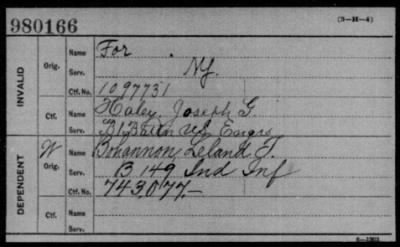 980166
(3-H-4)
INVALID
Orig. Name For
Serv. Ny.
Ctf. No. 1097731
Ctf. Name Haley, Joseph G.
Serv. B1 Batn US Engrs
DEPENDENT
W Orig. Name Bohannon, Leland T.
Serv. B 149 Ind Inf
Ctf. No. 743077
Ctf. Name
Serv.